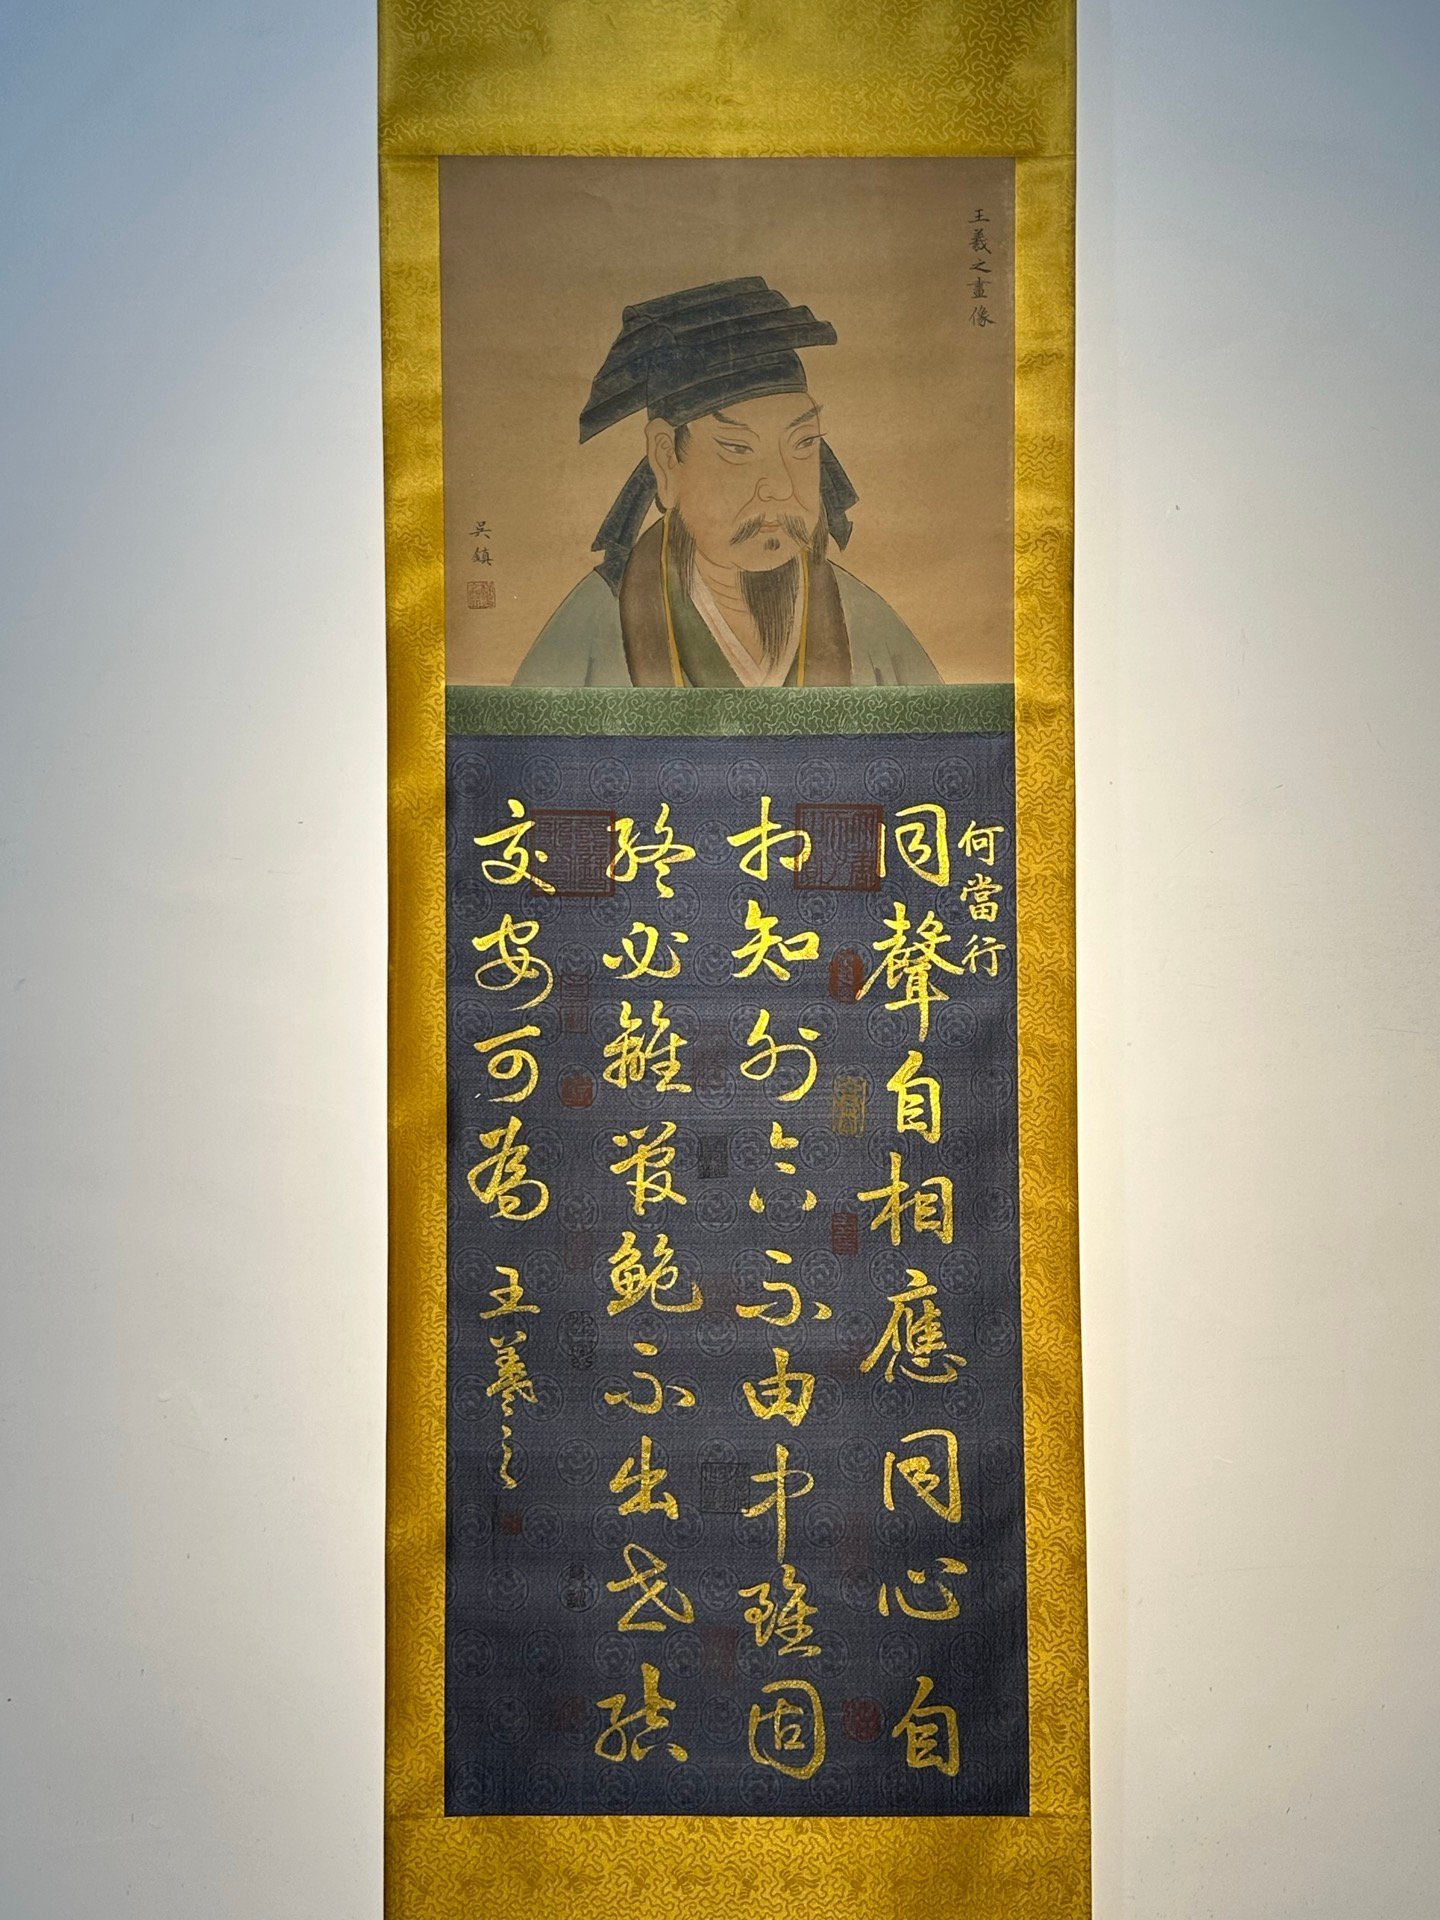 王羲之畫像
吳鎮
何當行
同聲自相應同心自
相知外合不由中雖固
終必離管鮑不出世結
交安可為 王羲之